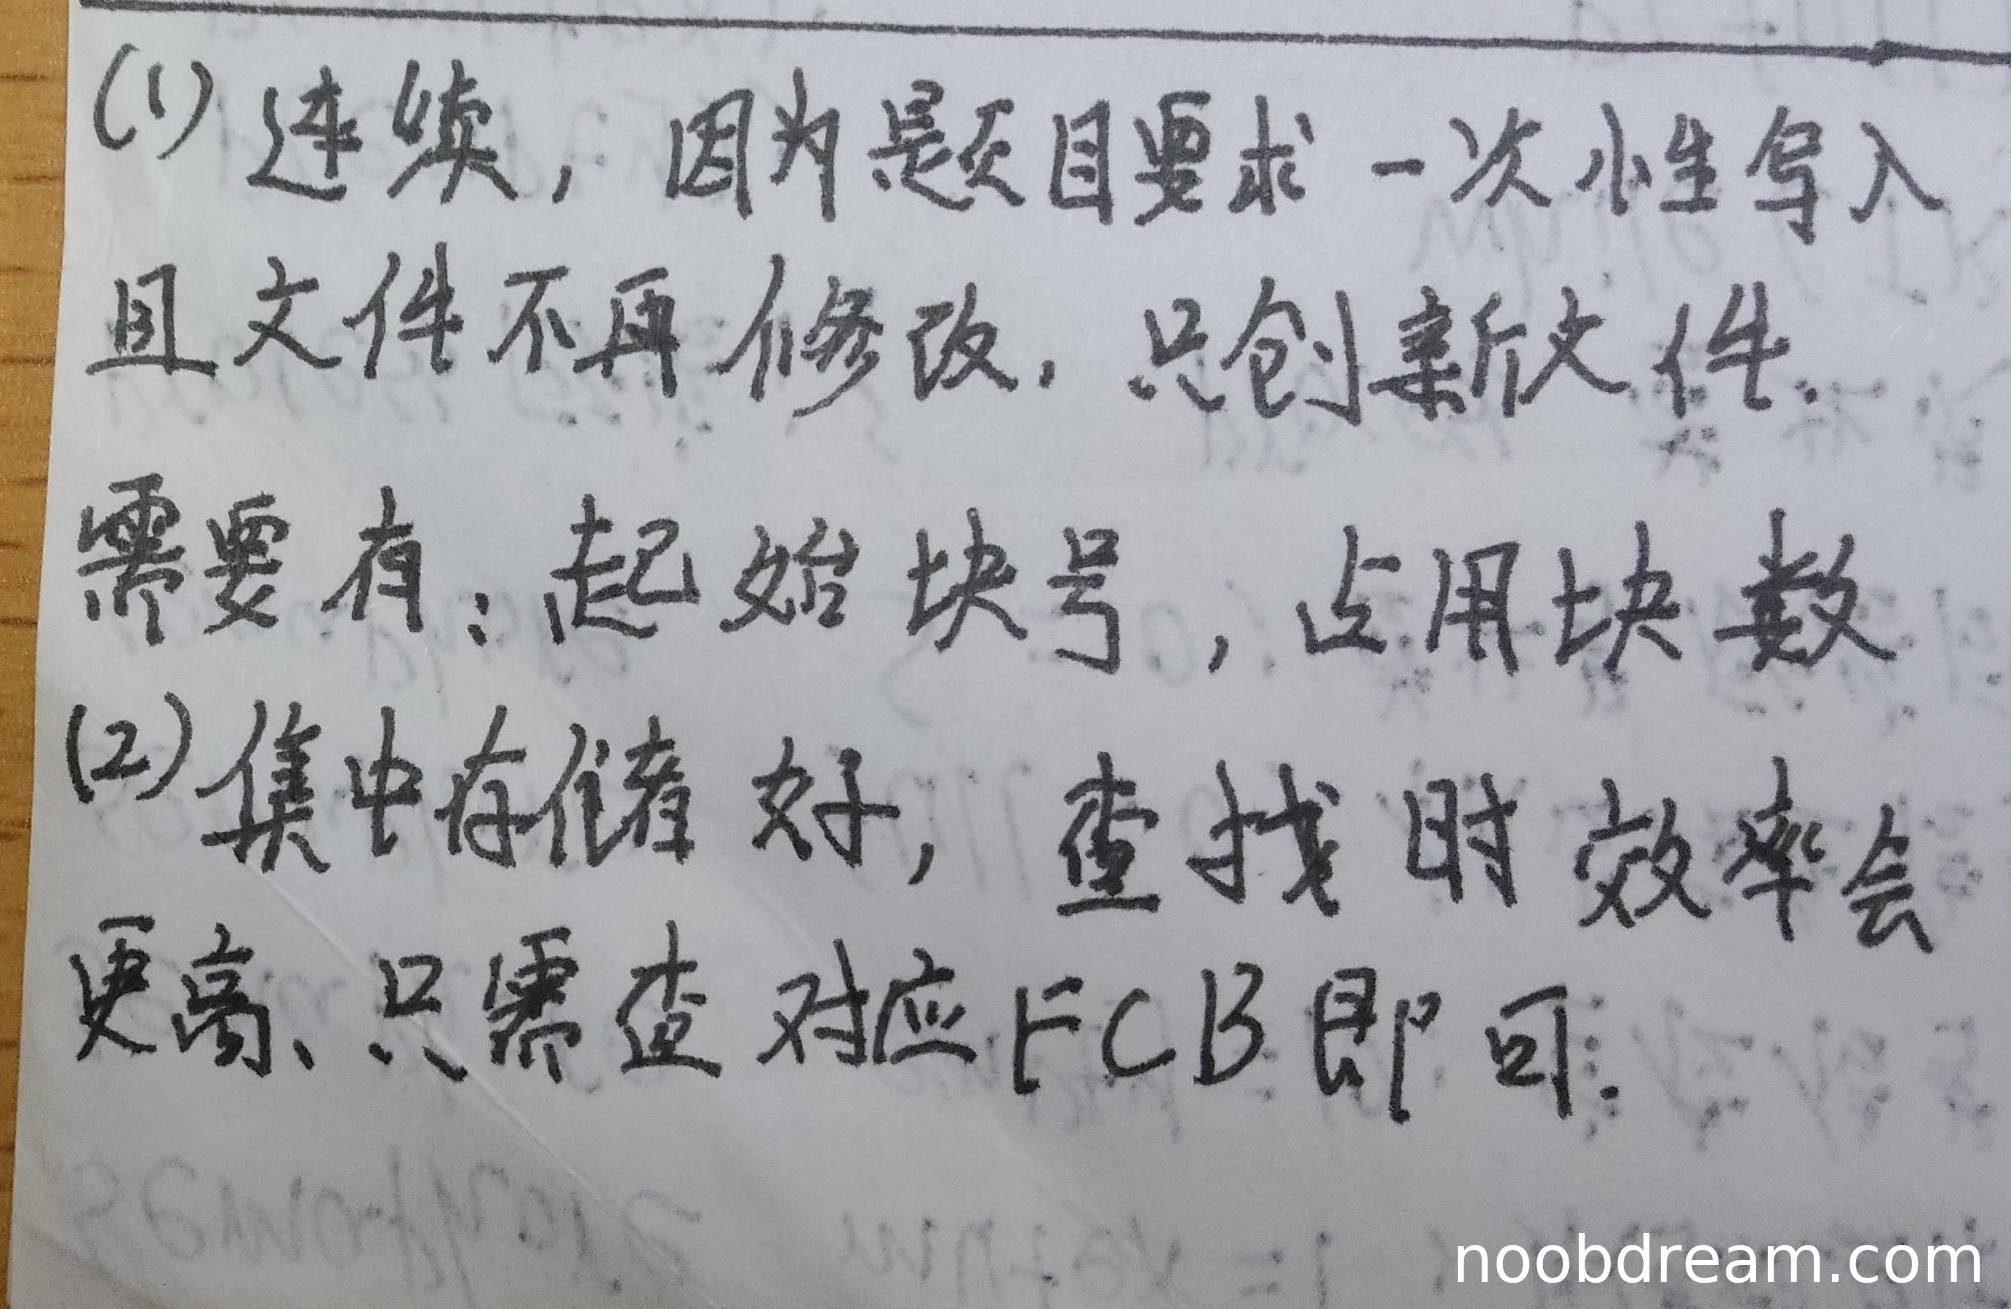 (1) 连续，因为题目要求一次性写入
且文件不再修改，只创新文件.
需要有：起始块号，占用块数
(2) 集中存储好，查找时效率会
更高、只需查对应FCB即可.
noobdream.com